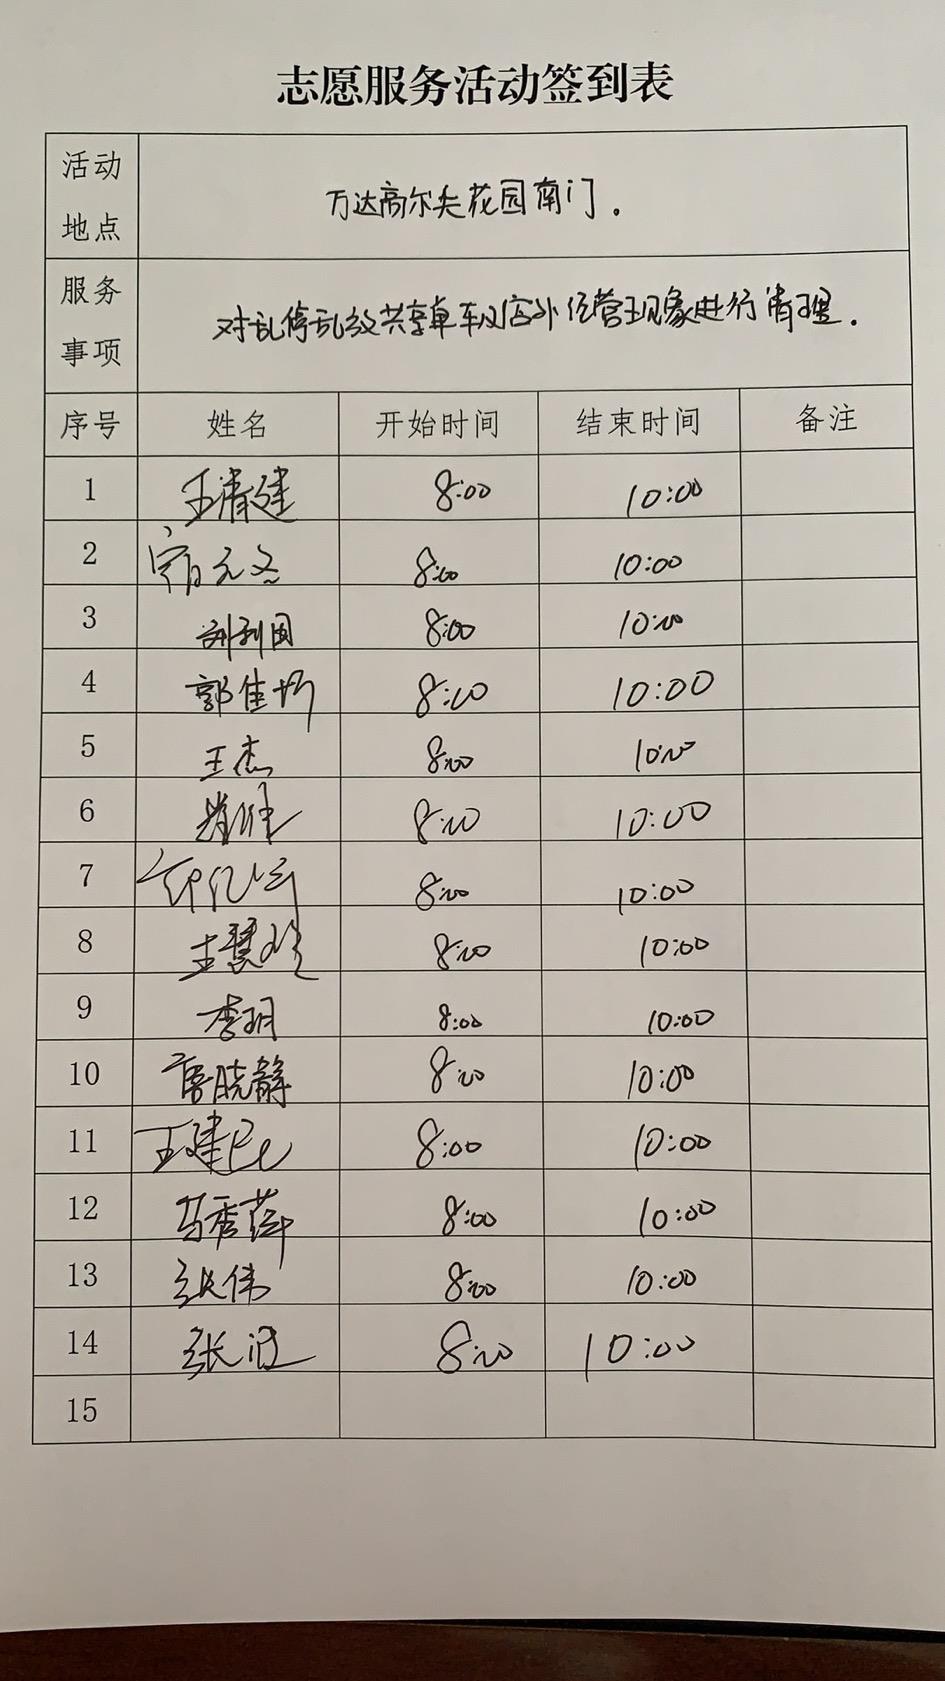 志愿服务活动签到表
活动地点 万达高尔夫花园南门.
服务事项 对乱停乱放共享单车及店外经营现象进行清理.
序号 姓名 开始时间 结束时间 备注
1 王清建 8:00 10:00
2 8:00 10:00
3 刘利国 8:00 10:00
4 郭佳 8:00 10:00
5 王杰 8:00 10:00
6 8:00 10:00
7 8:00 10:00
8 王慧 8:00 10:00
9 李玥 8:00 10:00
10 唐晓静 8:00 10:00
11 王建民 8:00 10:00
12 马秀萍 8:00 10:00
13 张伟 8:00 10:00
14 张 8:00 10:00
15